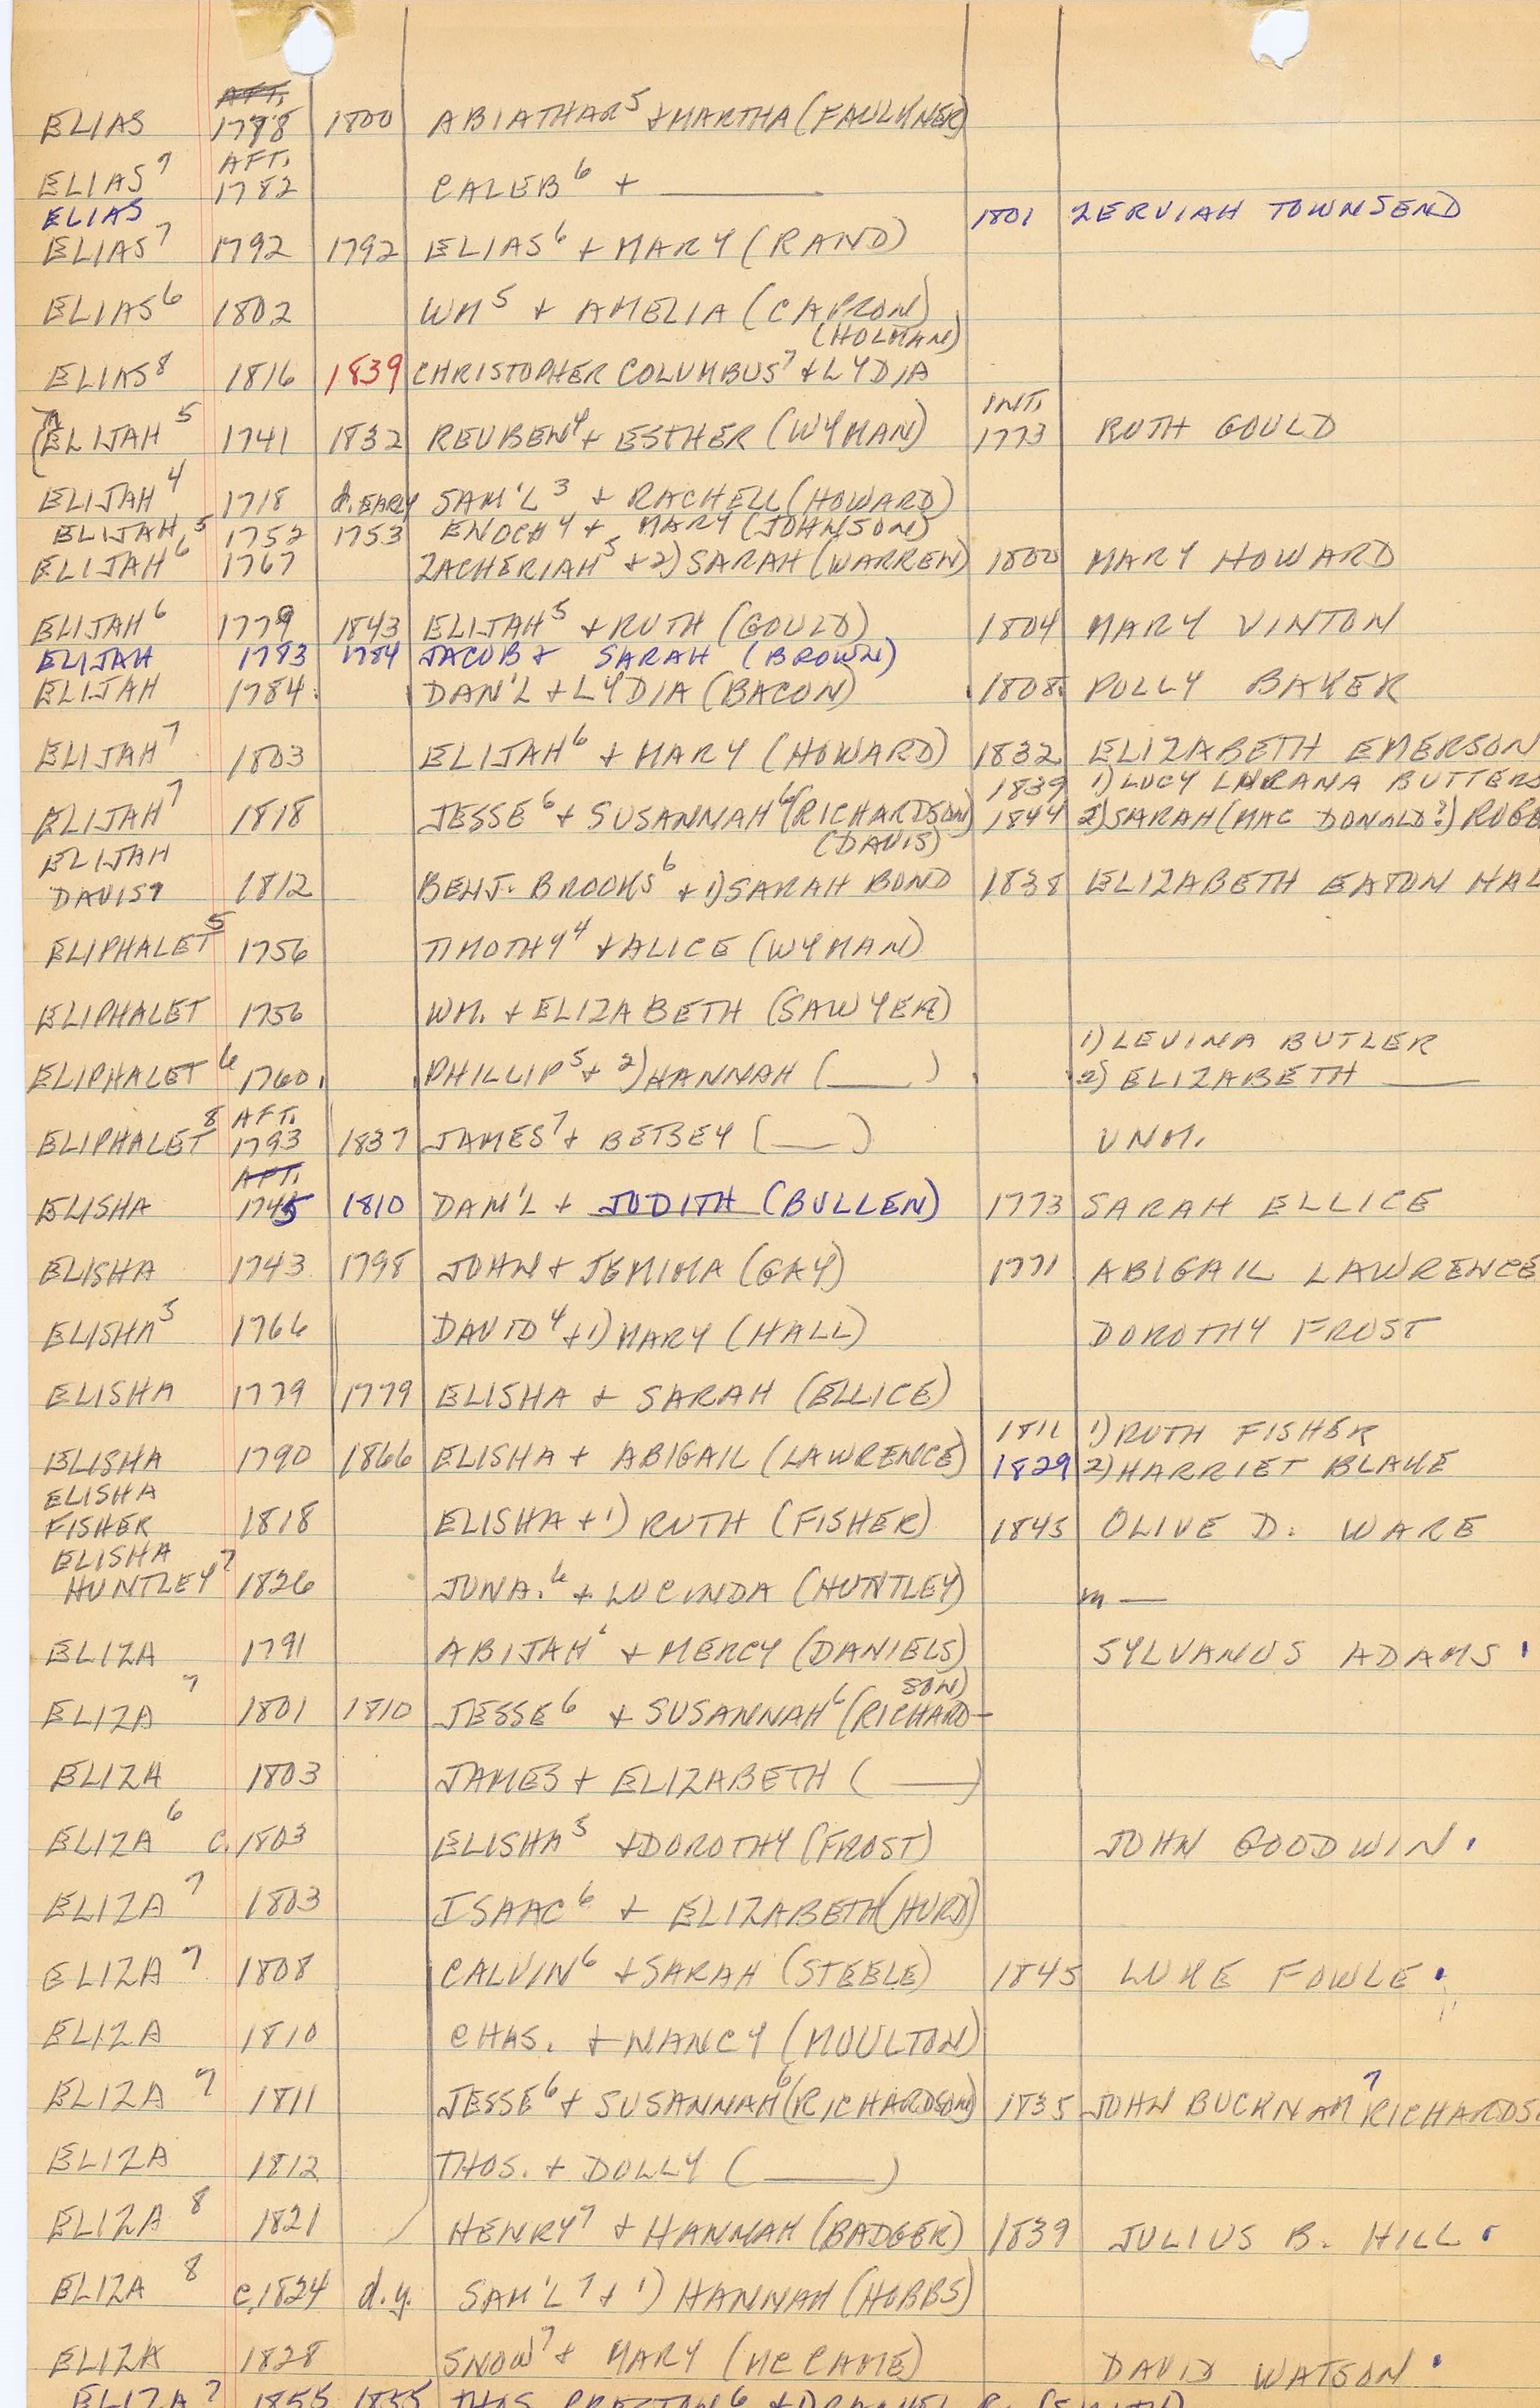 AFT.
ELIAS 1798 1800 ABIATHAR⁵ + MARTHA (FAULKNER)
AFT.
ELIAS⁷ 1782 CALEB⁶ + ______
ELIAS 1801 ZERVIAH TOWNSEND
ELIAS⁷ 1792 1792 ELIAS⁶ + MARY (RAND)
ELIAS⁶ 1802 WM⁵ + AMELIA (CAPRON)
(HOLMAN)
ELIAS⁸ 1816 1839 CHRISTOPHER COLUMBUS⁷ + LYDIA
INT.
ELIJAH⁵ 1741 1832 REUBEN⁴ + ESTHER (WYMAN) 1773 RUTH GOULD
ELIJAH⁴ 1718 d. EARY SAM'L³ + RACHELL (HOWARD)
ELIJAH⁵ 1752 1753 ENOCH⁴ + MARY (JOHNSON)
ELIJAH⁶ 1767 ZACHERIAH⁵ + 2) SARAH (WARREN) 1800 MARY HOWARD
ELIJAH⁶ 1779 1843 ELIJAH⁵ + RUTH (GOULD) 1804 MARY VINTON
ELIJAH 1783 1784 JACOB + SARAH (BROWN)
ELIJAH 1784 DAN'L + LYDIA (BACON) 1808 POLLY BAKER
ELIJAH⁷ 1803 ELIJAH⁶ + MARY (HOWARD) 1832 ELIZABETH EMERSON
1839 1) LUCY LURANA BUTTERS
ELIJAH⁷ 1818 JESSE⁶ + SUSANNAH⁶ (RICHARDSON) 1844 2) SARAH (MAC DONALD?)
ELIJAH (DAVIS)
DAVIS⁷ 1812 BENJ. BROOKS⁶ + 1) SARAH BOND 1838 ELIZABETH EATON HAL
ELIPHALET⁵ 1756 TIMOTHY⁴ + ALICE (WYMAN)
ELIPHALET 1756 WM. + ELIZABETH (SAWYER)
1) LEVINA BUTLER
ELIPHALET⁶ 1760 PHILLIP⁵ + 2) HANNAH (____) 2) ELIZABETH ____
AFT.
ELIPHALET⁸ 1793 1837 JAMES⁷ + BETSEY (___) UNM.
AFT.
ELISHA 1745 1810 DAN'L + JUDITH (BULLEN) 1773 SARAH ELLICE
ELISHA 1743 1798 JOHN + JEMIMA (GAY) 1771 ABIGAIL LAWRENCE
ELISHA⁵ 1766 DAVID⁴ + 1) MARY (HALL) DOROTHY FROST
ELISHA 1779 1779 ELISHA + SARAH (ELLICE)
1811 1) RUTH FISHER
ELISHA 1790 1866 ELISHA + ABIGAIL (LAWRENCE) 1829 2) HARRIET BLAKE
ELISHA
FISHER 1818 ELISHA + 1) RUTH (FISHER) 1845 OLIVE D. WARE
ELISHA
HUNTLEY⁷ 1826 JONA.⁶ + LUCINDA (HUNTLEY) m —
ELIZA 1791 ABIJAH⁶ + MERCY (DANIELS) SYLVANUS ADAMS
SON)
ELIZA⁷ 1801 1810 JESSE⁶ + SUSANNAH⁶ (RICHARD-
ELIZA 1803 JAMES + ELIZABETH (____)
ELIZA⁶ c. 1803 ELISHA⁵ + DOROTHY (FROST) JOHN GOODWIN
ELIZA⁷ 1803 ISAAC⁶ + ELIZABETH (HURD)
ELIZA⁷ 1808 CALVIN⁶ + SARAH (STEELE) 1845 LUKE FOWLE
ELIZA 1810 CHAS. + NANCY (MOULTON)
ELIZA⁷ 1811 JESSE⁶ + SUSANNAH⁶ (RICHARDSON) 1835 JOHN BUCKNAM⁷ RICHARDS
ELIZA 1812 THOS. + DOLLY (____)
ELIZA⁸ 1821 HENRY⁷ + HANNAH (BADGER) 1839 JULIUS B. HILL
ELIZA⁸ c. 1824 d.y. SAM'L⁷ + 1) HANNAH (HOBBS)
ELIZA 1828 SNOW⁷ + MARY (McCAME) DAVID WATSON
ELIZA⁷ 1855 1855 THOS. PRESTON⁶ + 1) RACHEL